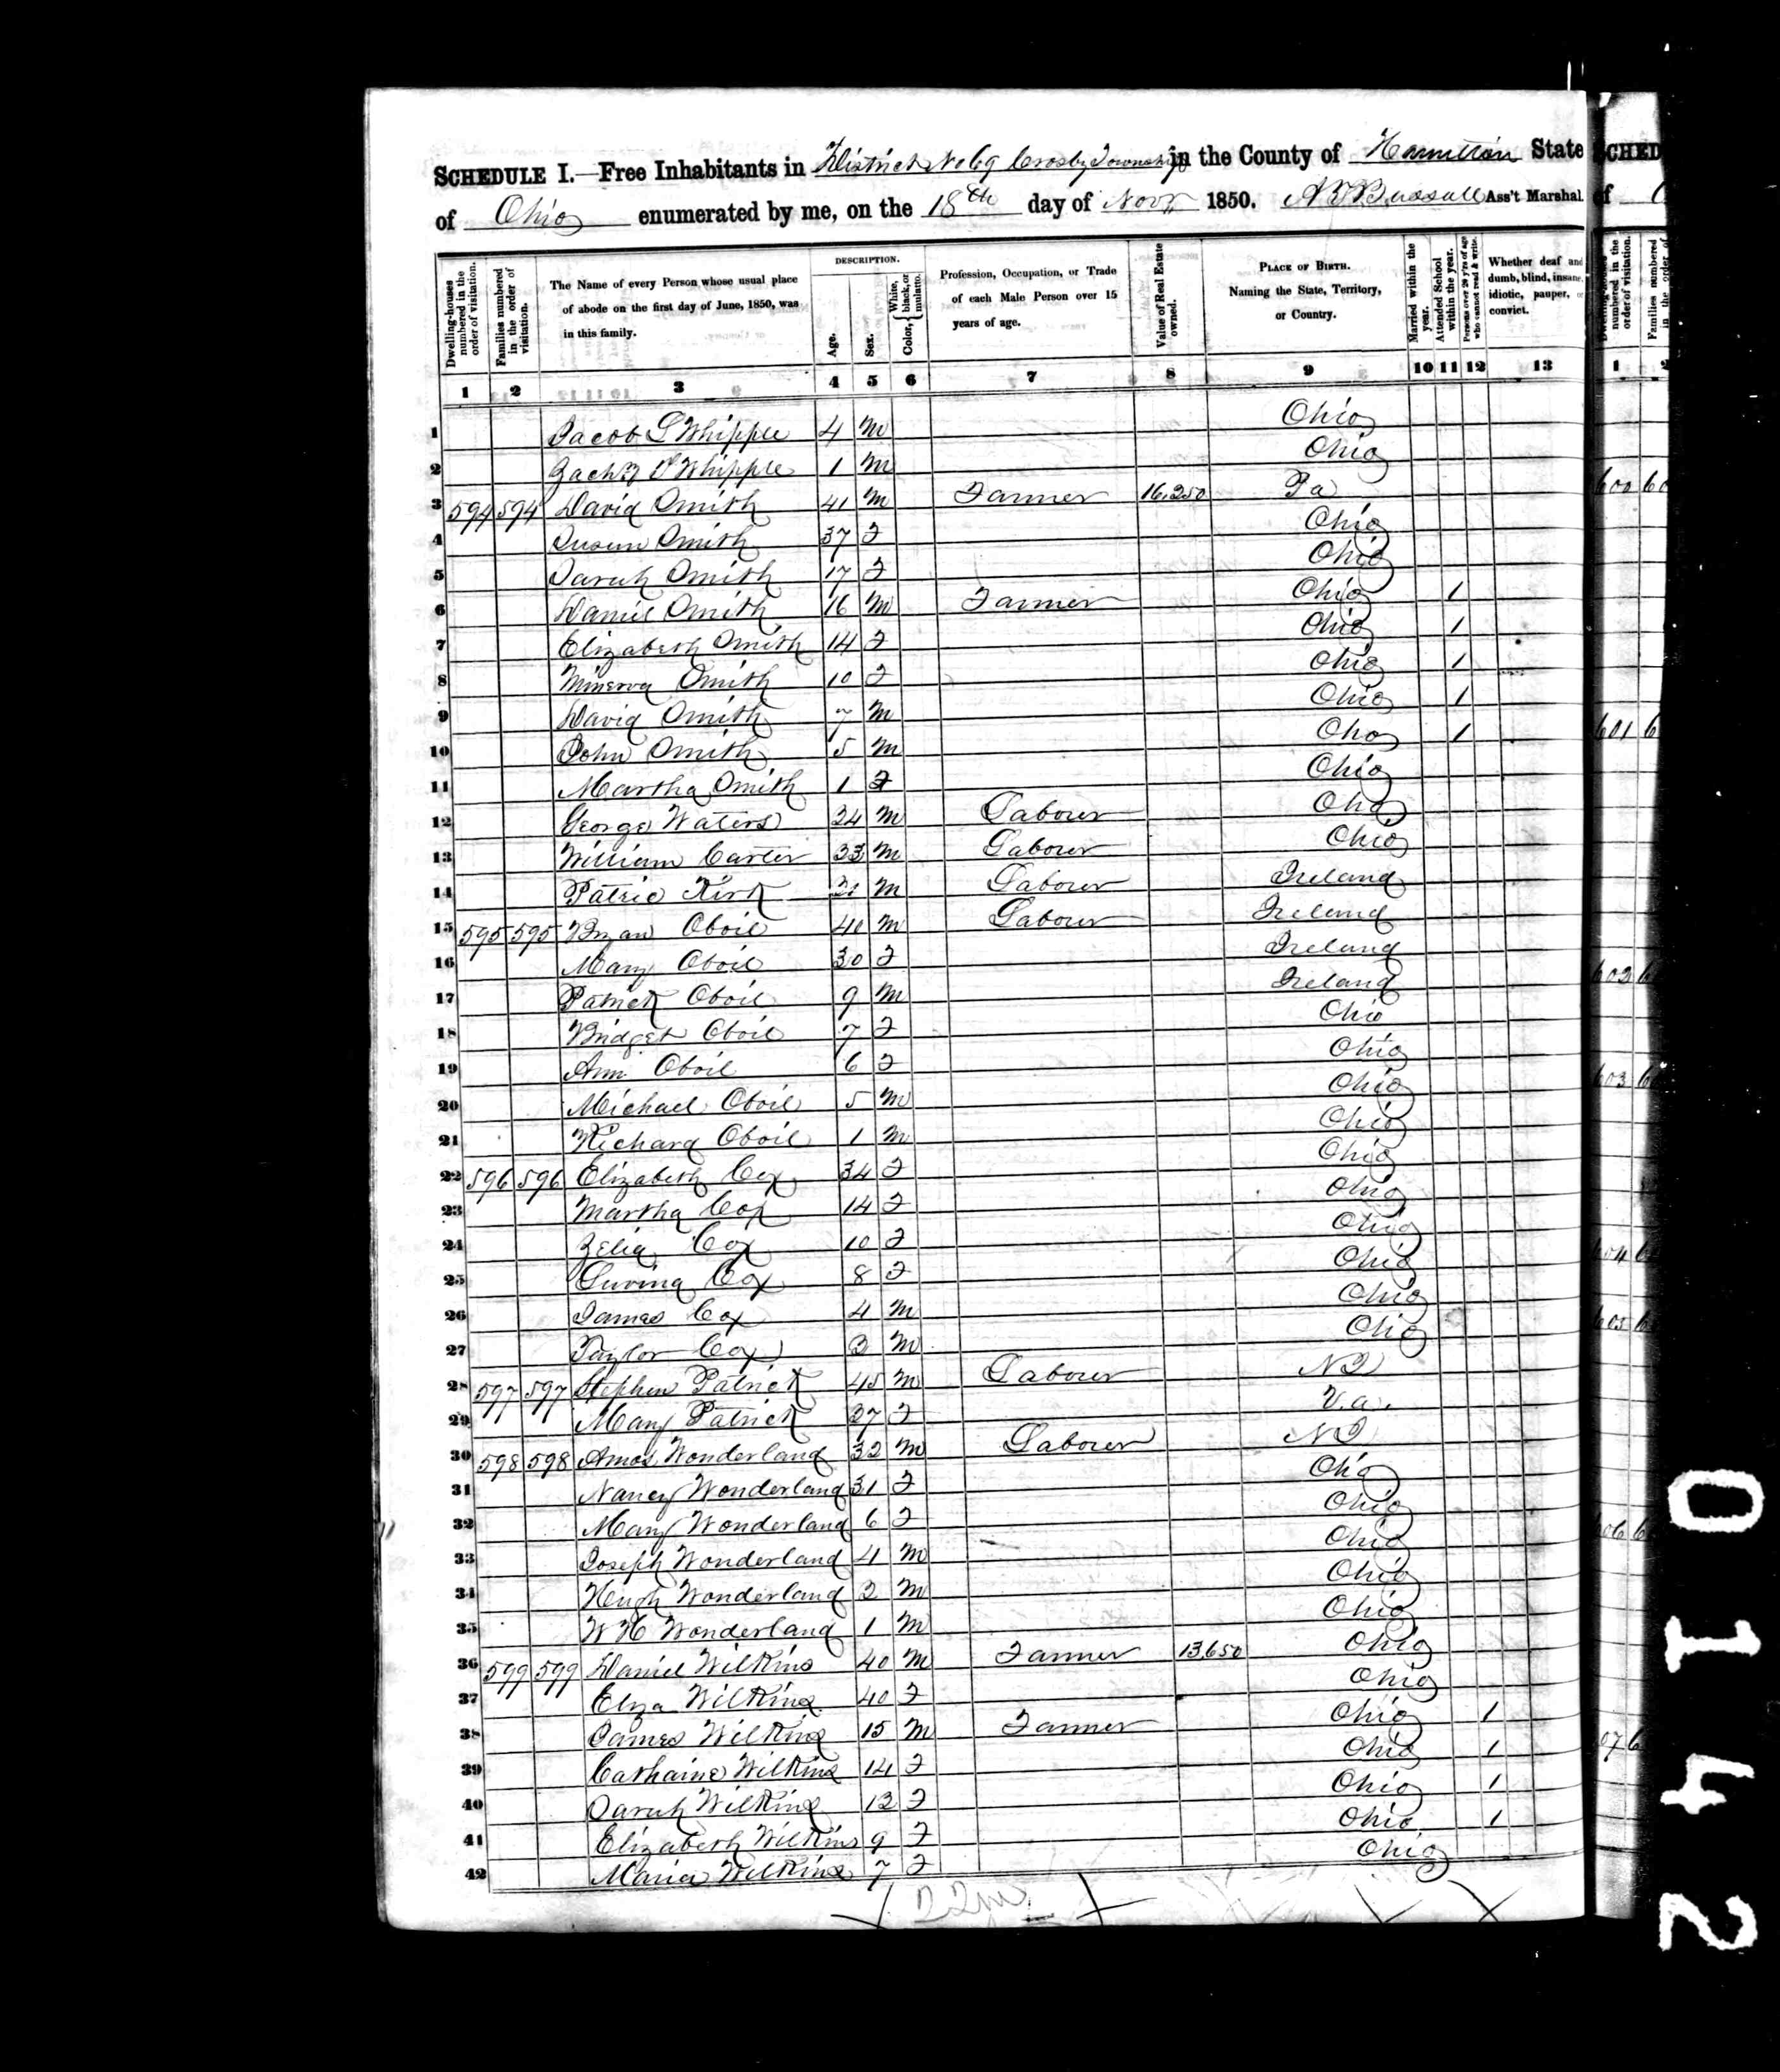 SCHEDULE I.—Free Inhabitants in District No 69 Crosby Township in the County of Hamilton State
of Ohio enumerated by me, on the 18th day of Novr 1850. Ass't Marshal
Dwelling-houses numbered in the order of visitation. Families numbered in the order of visitation. The Name of every Person whose usual place of abode on the first day of June, 1850, was in this family. DESCRIPTION. Age. Sex. Color, White, black, or mulatto. Profession, Occupation, or Trade of each Male Person over 15 years of age. Value of Real Estate owned. PLACE OF BIRTH. Naming the State, Territory, or Country. Married within the year. Attended School within the year. Persons over 20 y'rs of age who cannot read & write. Whether deaf and dumb, blind, insane, idiotic, pauper, or convict.
1 2 3 4 5 6 7 8 9 10 11 12 13
1 Jacob S Whipple 4 M Ohio
2 Whipple 1 M Ohio
3 594 594 David Smith 41 M Farmer 16,250 Pa
4 Susan Smith 37 F Ohio
5 Sarah Smith 17 F Ohio
6 Daniel Smith 16 M Farmer Ohio 1
7 Elizabeth Smith 14 F Ohio 1
8 Minerva Smith 10 F Ohio 1
9 David Smith 7 M Ohio 1
10 John Smith 5 M Ohio 1
11 Martha Smith 1 F Ohio
12 George Waters 24 M Labourer Ohio
13 William Carter 33 M Labourer Ohio
14 Patric Kirk M Labourer Ireland
15 595 595 Bryan Oboil 40 M Labourer Ireland
16 Mary Oboil 30 F Ireland
17 Patrick Oboil 9 M Ireland
18 Bridget Oboil 7 F Ohio
19 Ann Oboil 6 F Ohio
20 Michael Oboil 5 M Ohio
21 Richard Oboil 1 M Ohio
22 596 596 Elizabeth Cox 34 F Ohio
23 Martha Cox 14 F Ohio
24 Zelia Cox 10 F Ohio
25 Luvina Cox 8 F Ohio
26 James Cox 4 M Ohio
27 Taylor Cox M Ohio
28 597 597 Stephen Patrick 45 M Labourer NJ
29 Mary Patrick 27 F Va.
30 598 598 Amos Wonderland 32 M Labourer NJ
31 Nancy Wonderland 31 F Ohio
32 Mary Wonderland 6 F Ohio
33 Joseph Wonderland 4 M Ohio
34 Hugh Wonderland 2 M Ohio
35 W H Wonderland 1 M Ohio
36 599 599 Daniel Wilkins 40 M Farmer 13,650 Ohio
37 Eliza Wilkins 40 F Ohio
38 James Wilkins 15 M Farmer Ohio 1
39 Catharine Wilkins 14 F Ohio 1
40 Sarah Wilkins 12 F Ohio 1
41 Elizabeth Wilkins 9 F Ohio 1
42 Maria Wilkins 7 F Ohio
SCHED
of
Dwelling-houses numbered in the order of visitation. Families numbered in the order of
1 2
600
601
602
603
604
605
606
607
0142